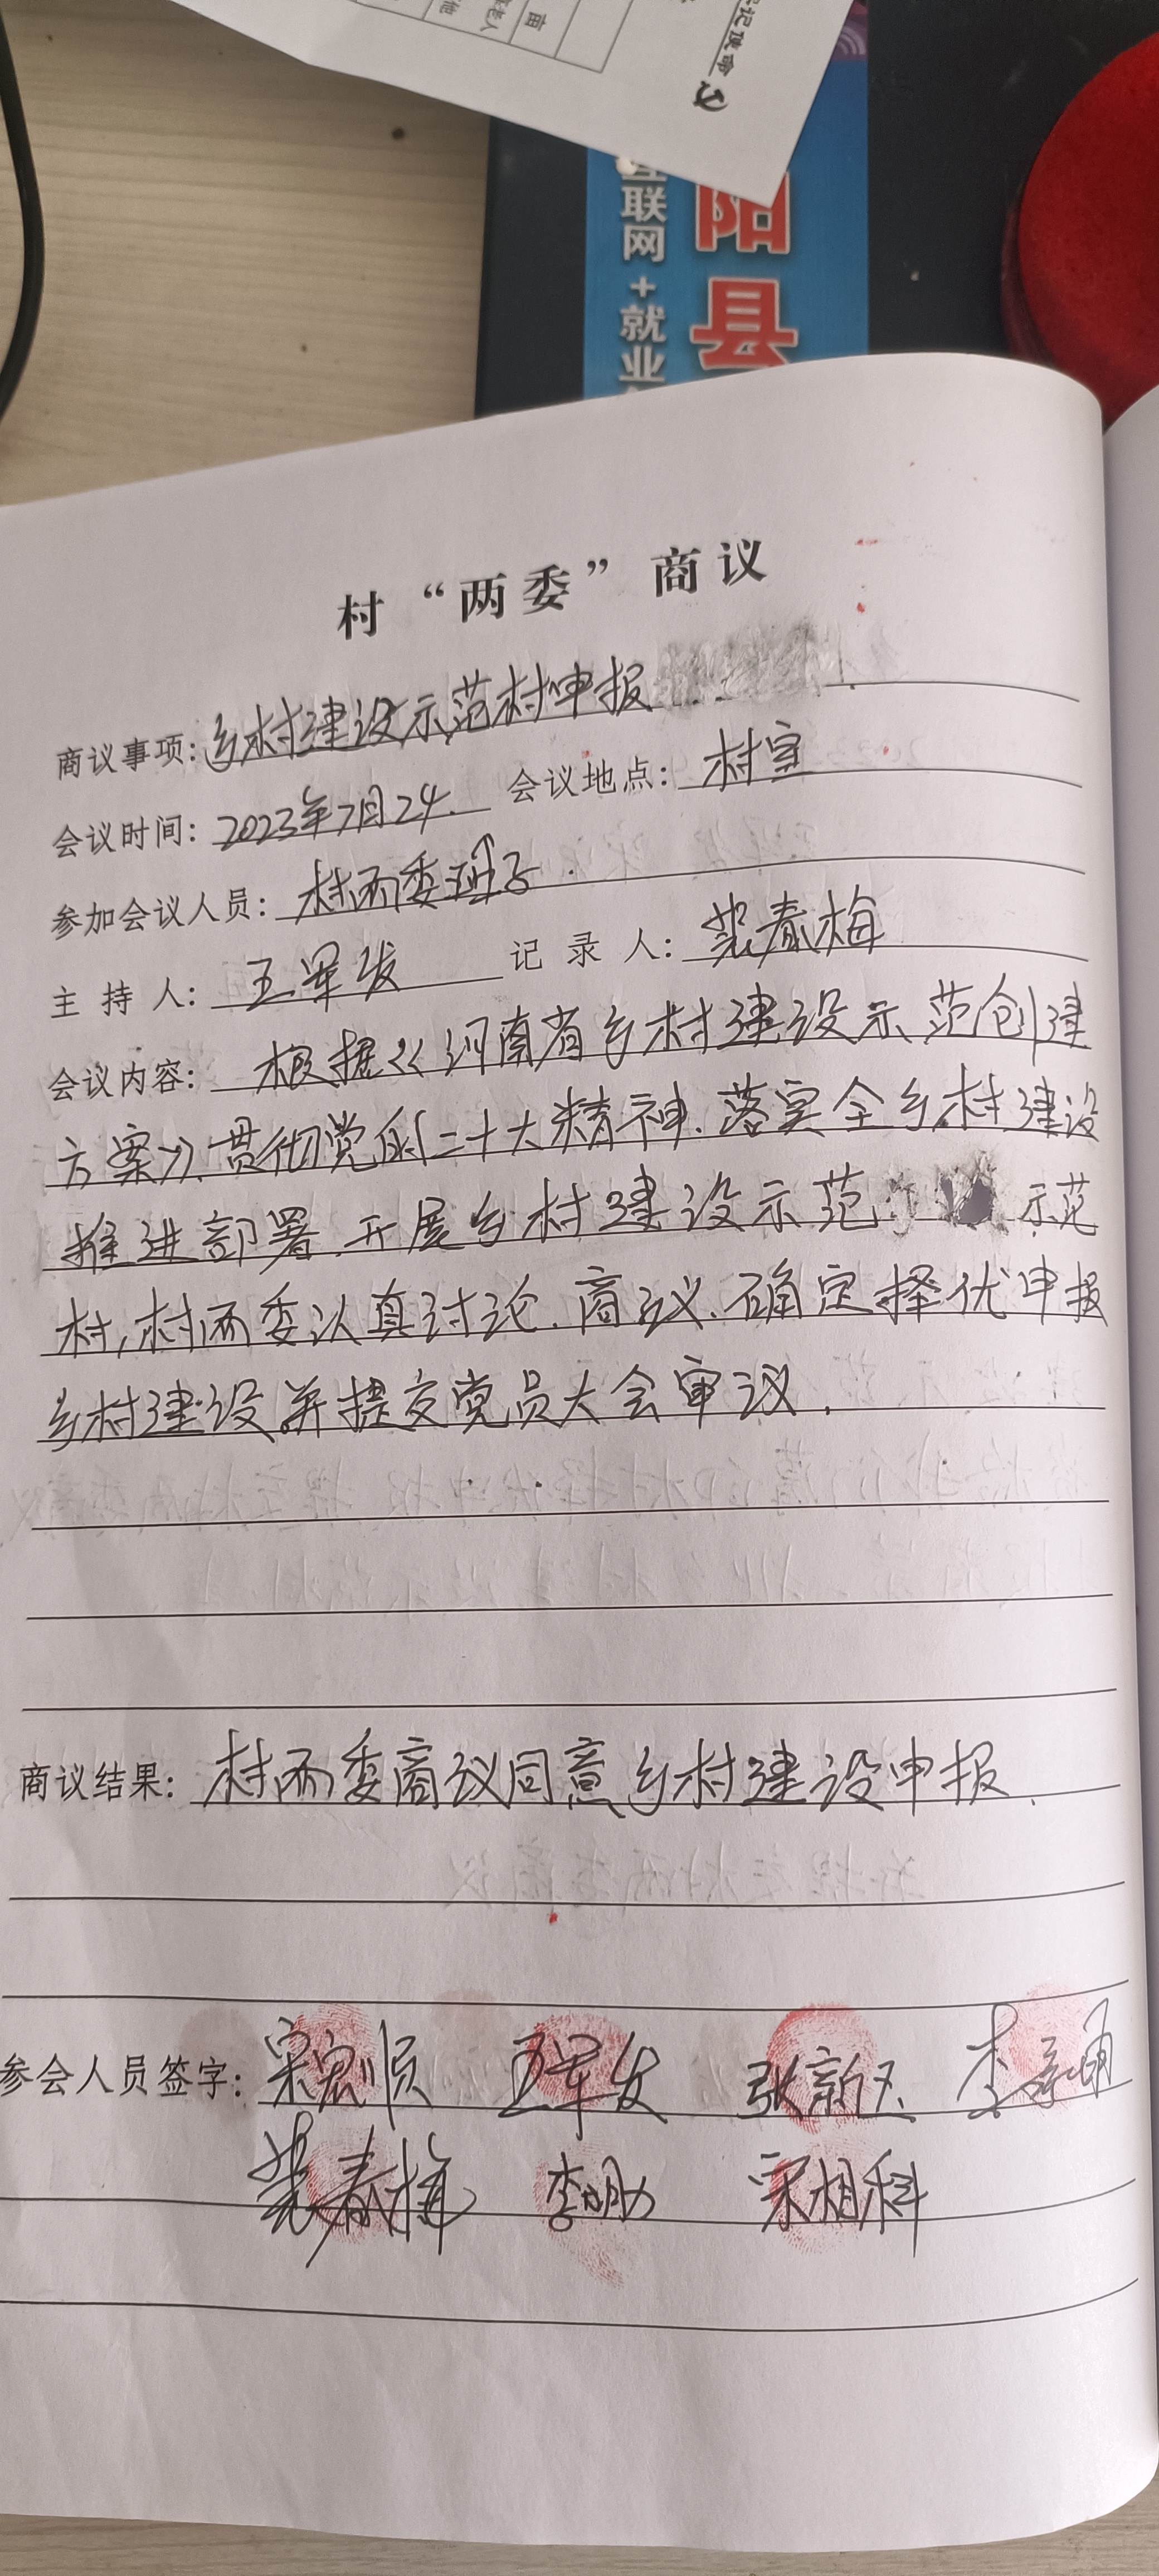 记使命
亩
互联网+就业
阳县
村“两委”商议
商议事项:乡村建设示范村申报
会议时间:2023年7月24. 会议地点:村室
参加会议人员:村两委班子.
主持人:王军发 记录人:裴春梅
会议内容:根据《河南省乡村建设示范创建
方案》贯彻党的二十大精神.落实全乡村建设
推进部署.开展乡村建设示范 示范
村,村两委认真讨论.商议.确定择优申报
乡村建设并提交党员大会审议.
商议结果:村两委商议同意乡村建设申报.
参会人员签字:宋宏顺 王军发 张新玉 李
裴春梅 李明 宋相科